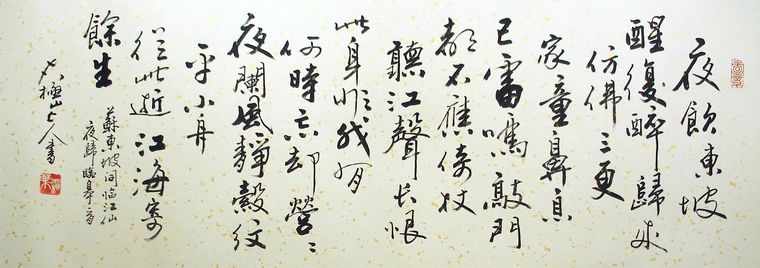 夜飲東坡
醒復醉歸來
仿佛三更
家童鼻息
已雷鳴敲門
都不應倚杖
聽江聲長恨
此身非我有
何時忘却營〻
夜闌風靜縠紋
平小舟
從此逝江海寄
餘生
蘇東坡詞临江仙
夜歸臨皋
極山人書